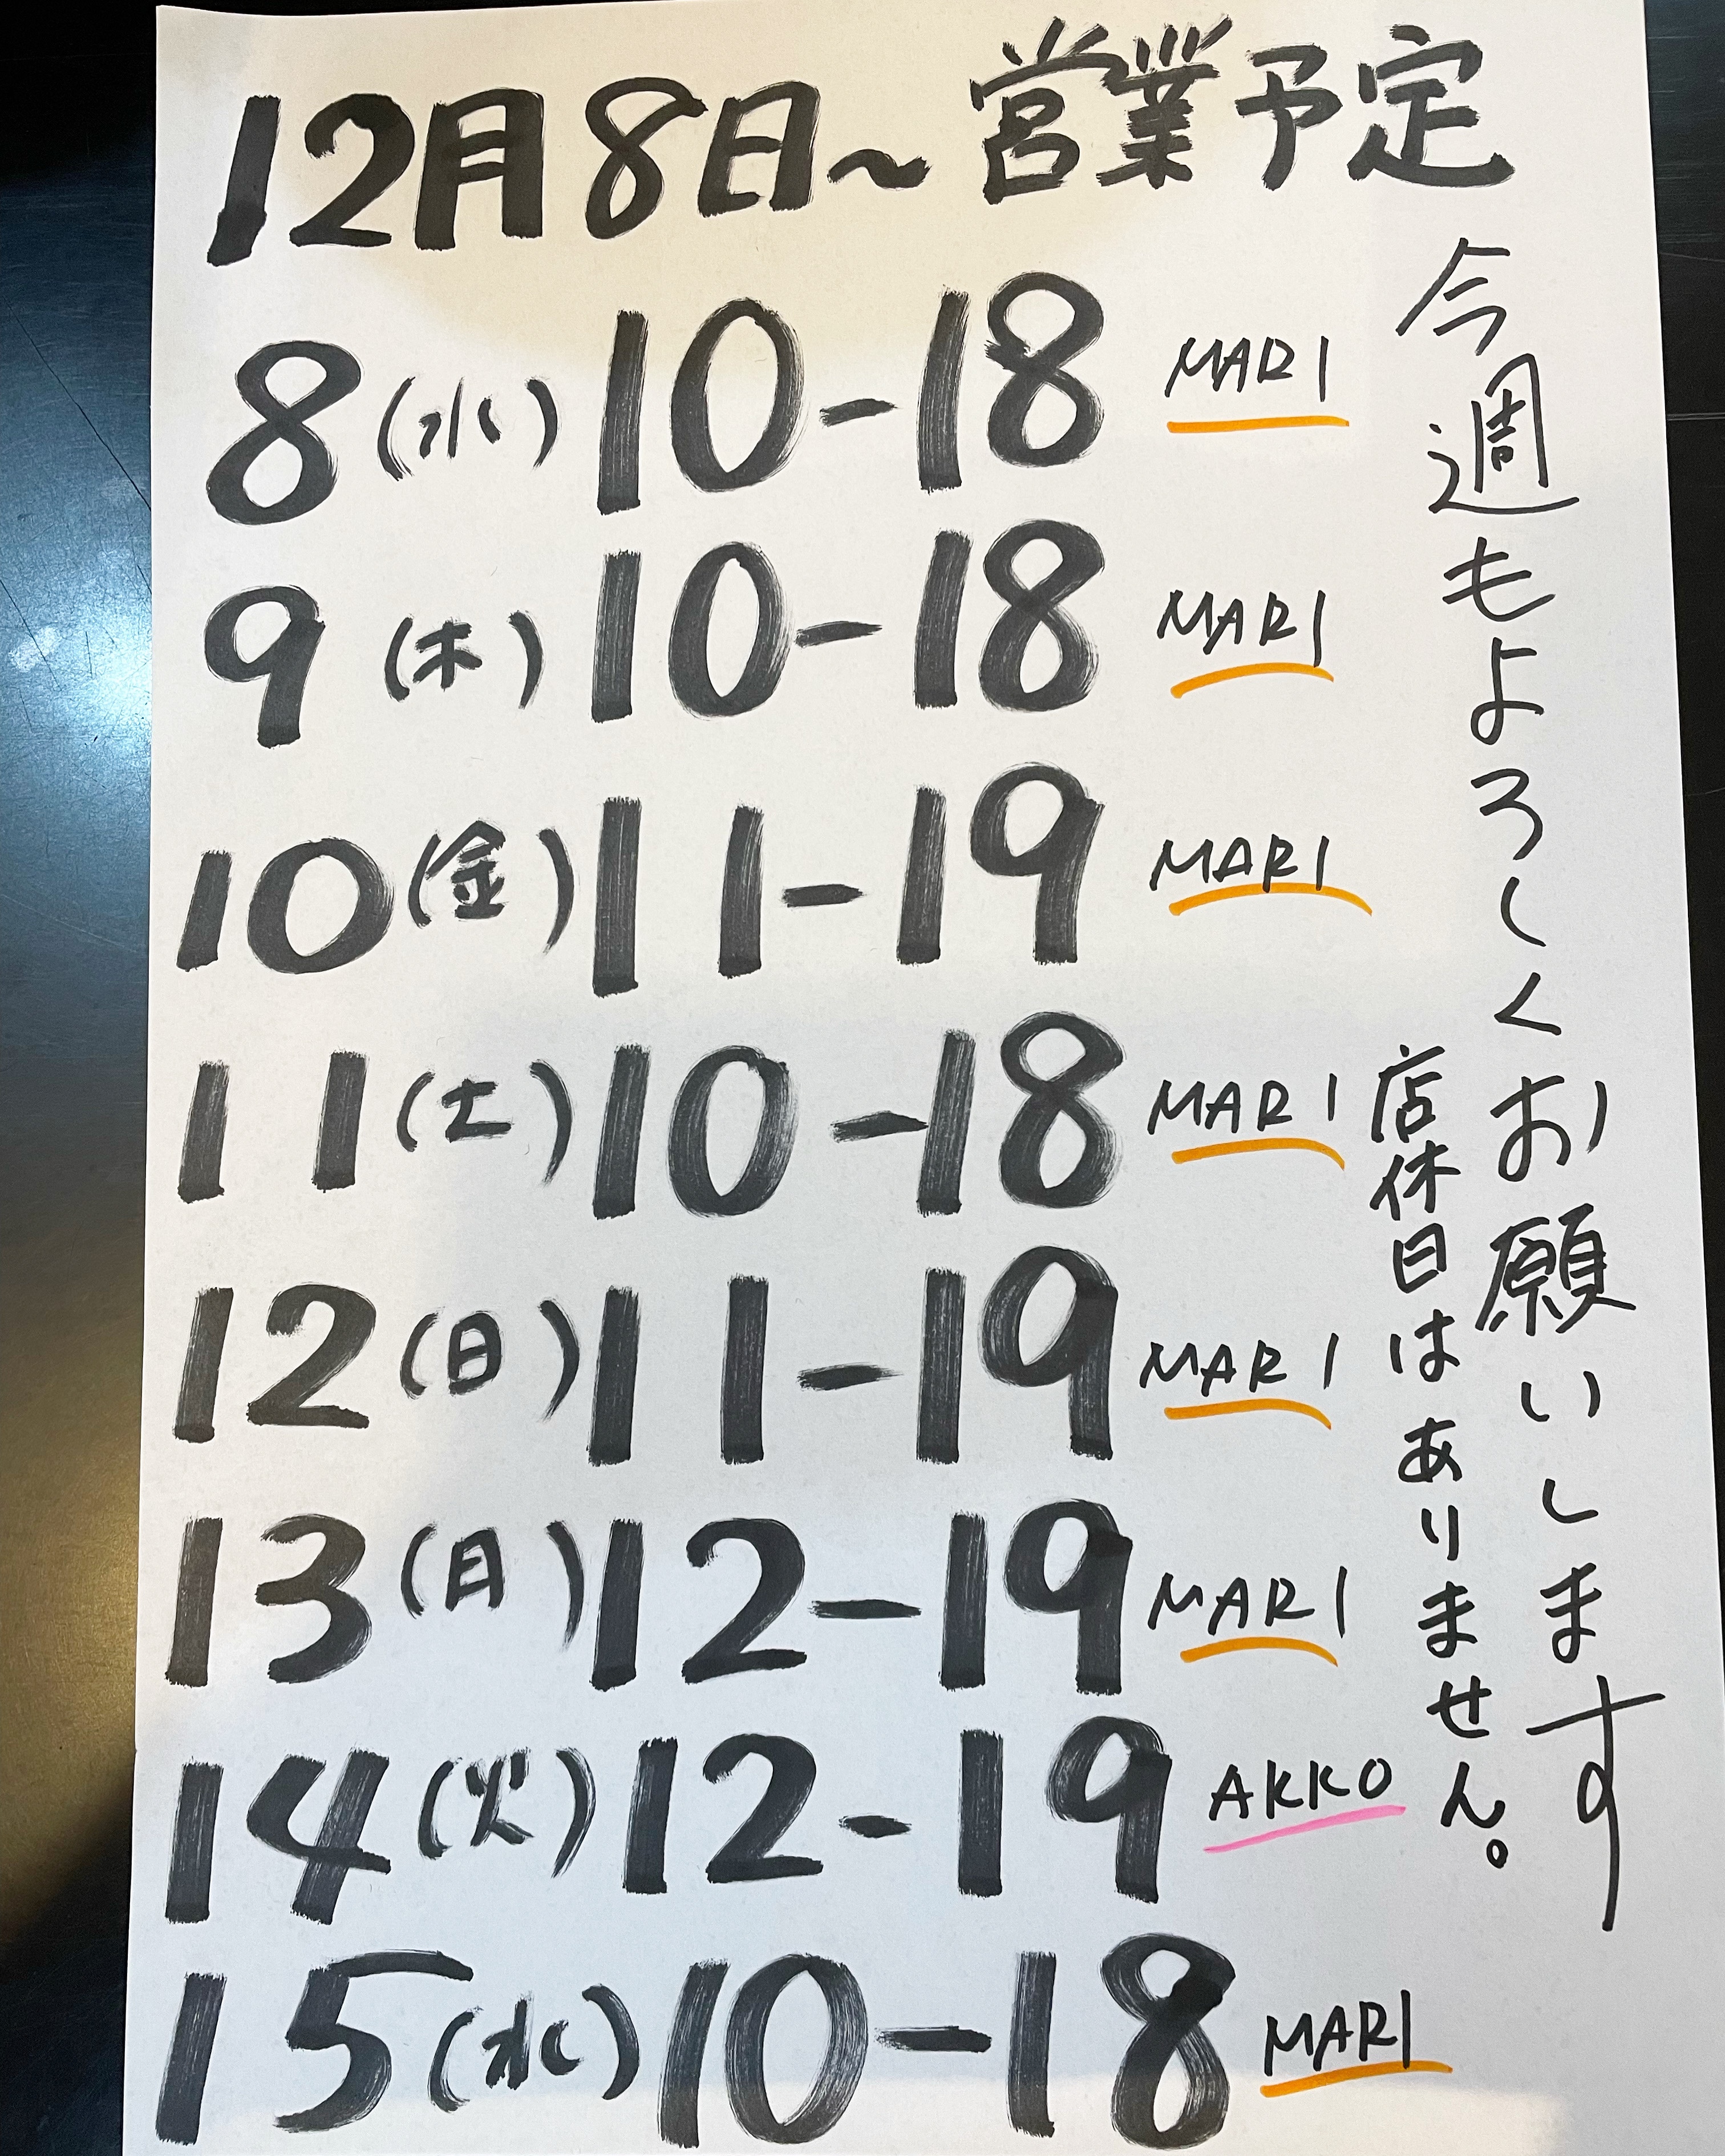 12月8日～営業予定
8(水) 10-18 MARI
9(木) 10-18 MARI
10(金) 11-19 MARI
11(土) 10-18 MARI
12(日) 11-19 MARI
13(月) 12-19 MARI
14(火) 12-19 AKKO
15(水) 10-18 MARI
今週もよろしくお願いします
店休日はありません。